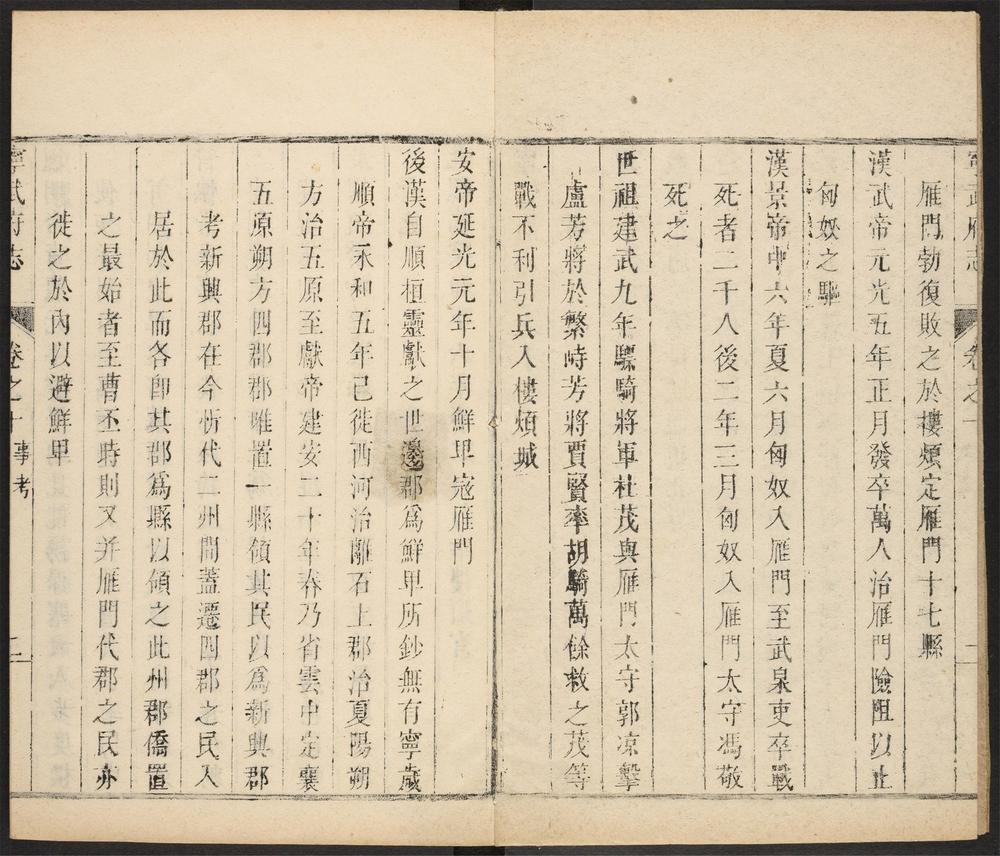 寧武府志 卷之十 二
雁門勃復敗之於樓煩定雁門十七縣
漢武帝元光五年正月發卒萬人治雁門險阻以止
匈奴之驅
漢景帝中六年夏六月匈奴入雁門至武泉吏卒戰
死者二千人後二年三月匈奴入雁門太守馮敬
死之
世祖建武九年驃騎將軍杜茂與雁門太守郭凉擊
盧芳將於繁畤芳將賈賢率胡騎萬餘救之茂等
戰不利引兵入樓煩城
安帝延光元年十月鮮卑寇雁門
後漢自順桓靈獻之世邊郡爲鮮卑所鈔無有寧歲
順帝永和五年已徙西河治離石上郡治夏陽朔
方治五原至獻帝建安二十年春乃省雲中定襄
五原朔方四郡郡唯置一縣領其民以爲新興郡
考新興郡在今忻代二州間蓋遷四郡之民入
居於此而各卽其郡爲縣以領之此州郡僑置
之最始者至曹丕時則又并雁門代郡之民亦
徙之於內以避鮮卑
寧武府志 卷之十 事考 二